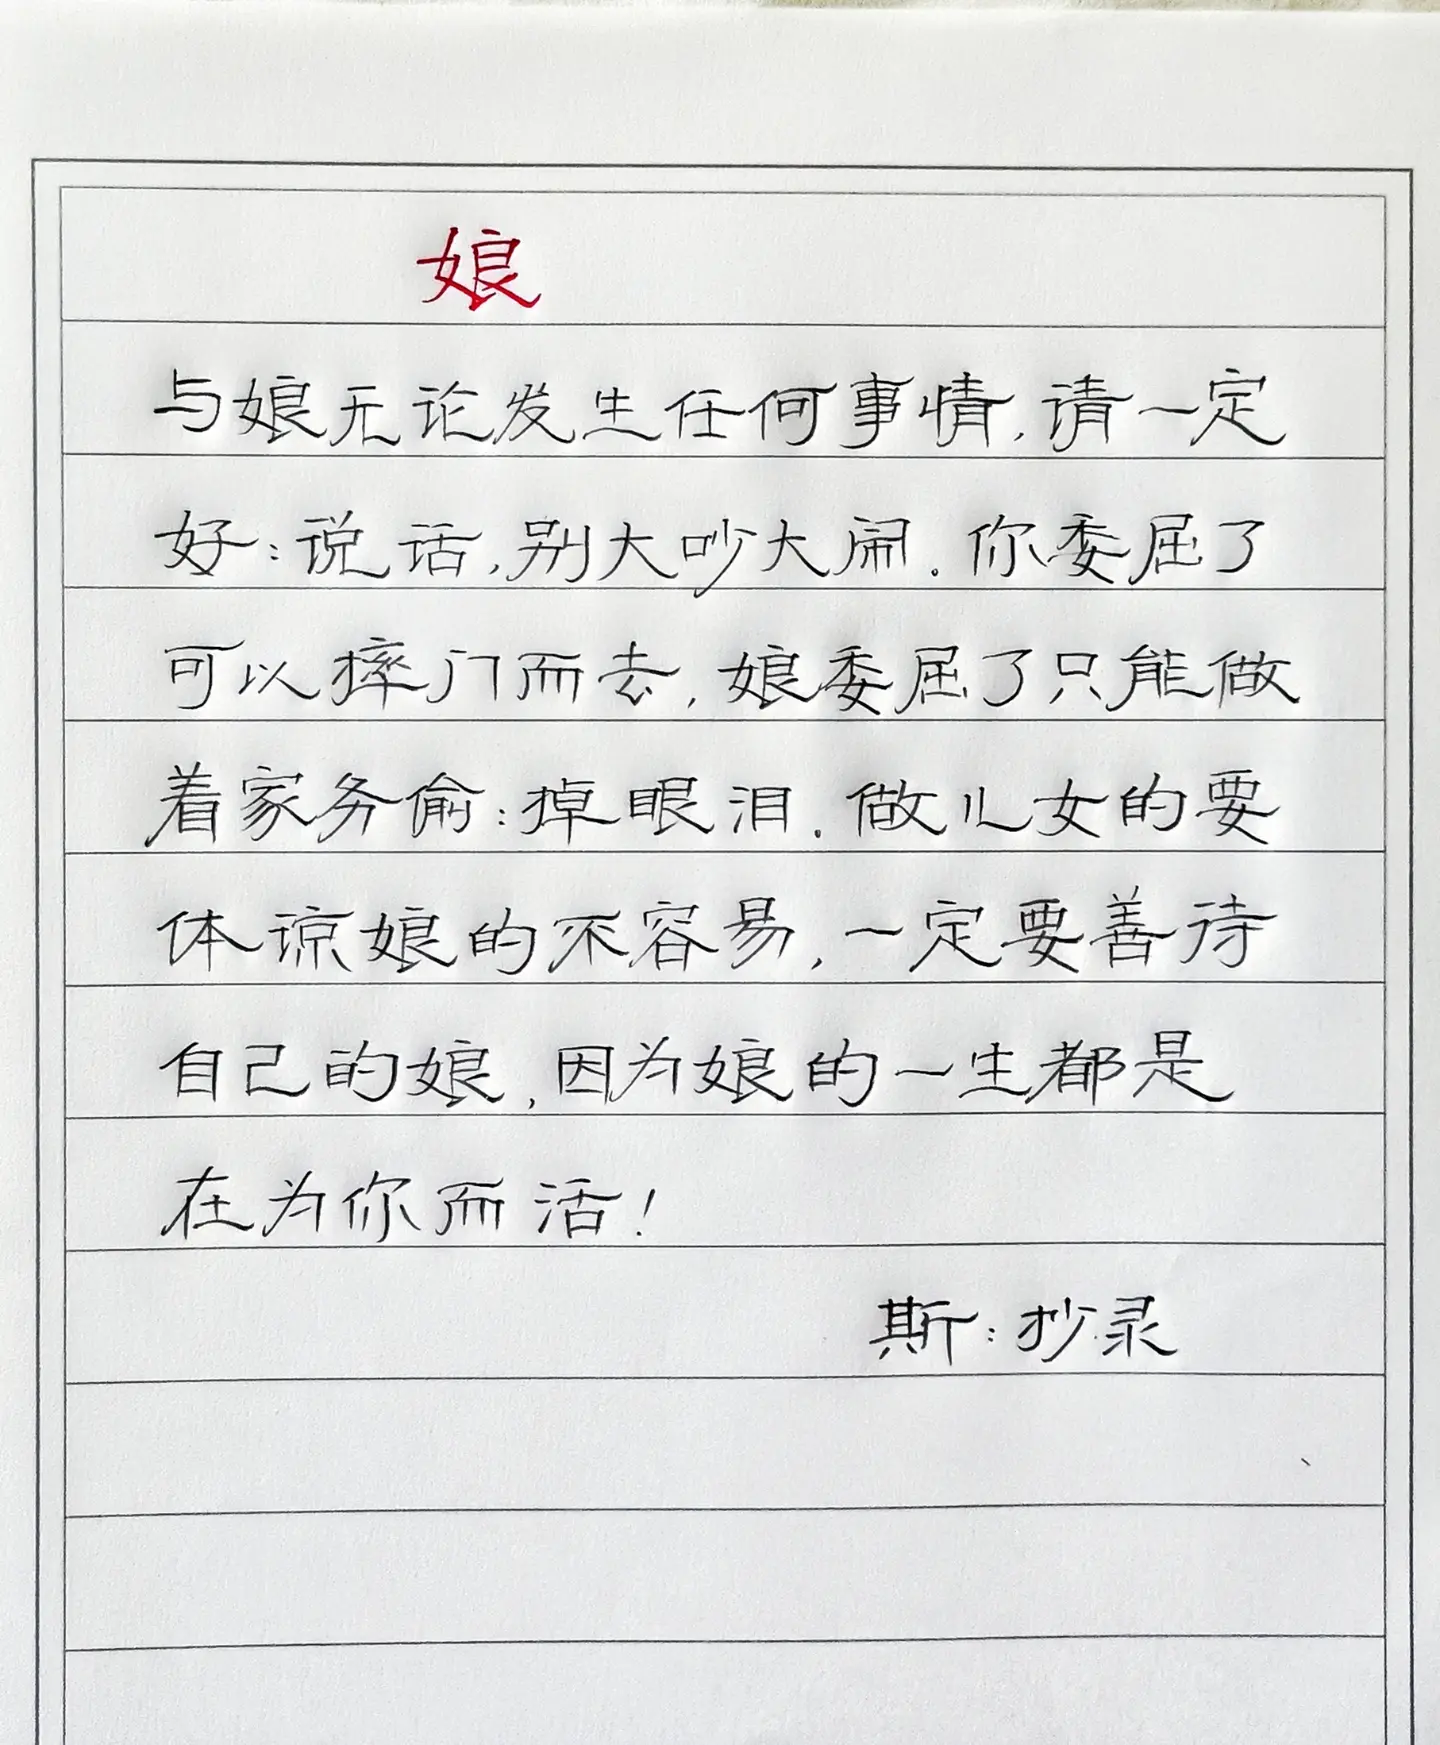 娘
与娘无论发生任何事情,请一定
好:说话,别大吵大闹.你委屈了
可以摔门而去,娘委屈了只能做
着家务偷:掉眼泪.做儿女的要
体谅娘的不容易,一定要善待
自己的娘,因为娘的一生都是
在为你而活!
斯:抄录